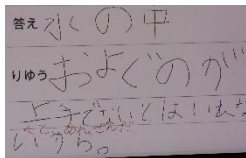 答え 水の中
りゆう およぐのが
上手でないとはいえな
いから。